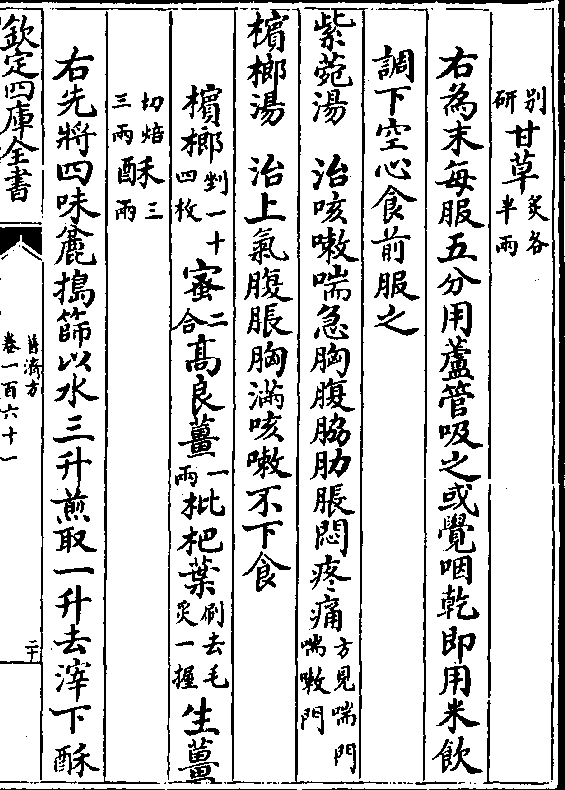 別研甘草炙各半兩
右為末每服五分用蘆管吸之或覺咽乾即用米飲
調下空心食前服之
紫菀湯　治咳嗽喘急胸腹脇肋脹悶疼痛方見喘門喘嗽門
檳榔湯　治上氣腹脹胸滿咳嗽不下食
檳榔剉一十四枚蜜二合高良薑一兩枇杷葉刷去毛炙一握生薑
切焙三兩酥三兩
右先將四味麄搗篩以水三升煎取一升去滓下酥
欽定四庫全書
普濟方
卷一百六十一
二十